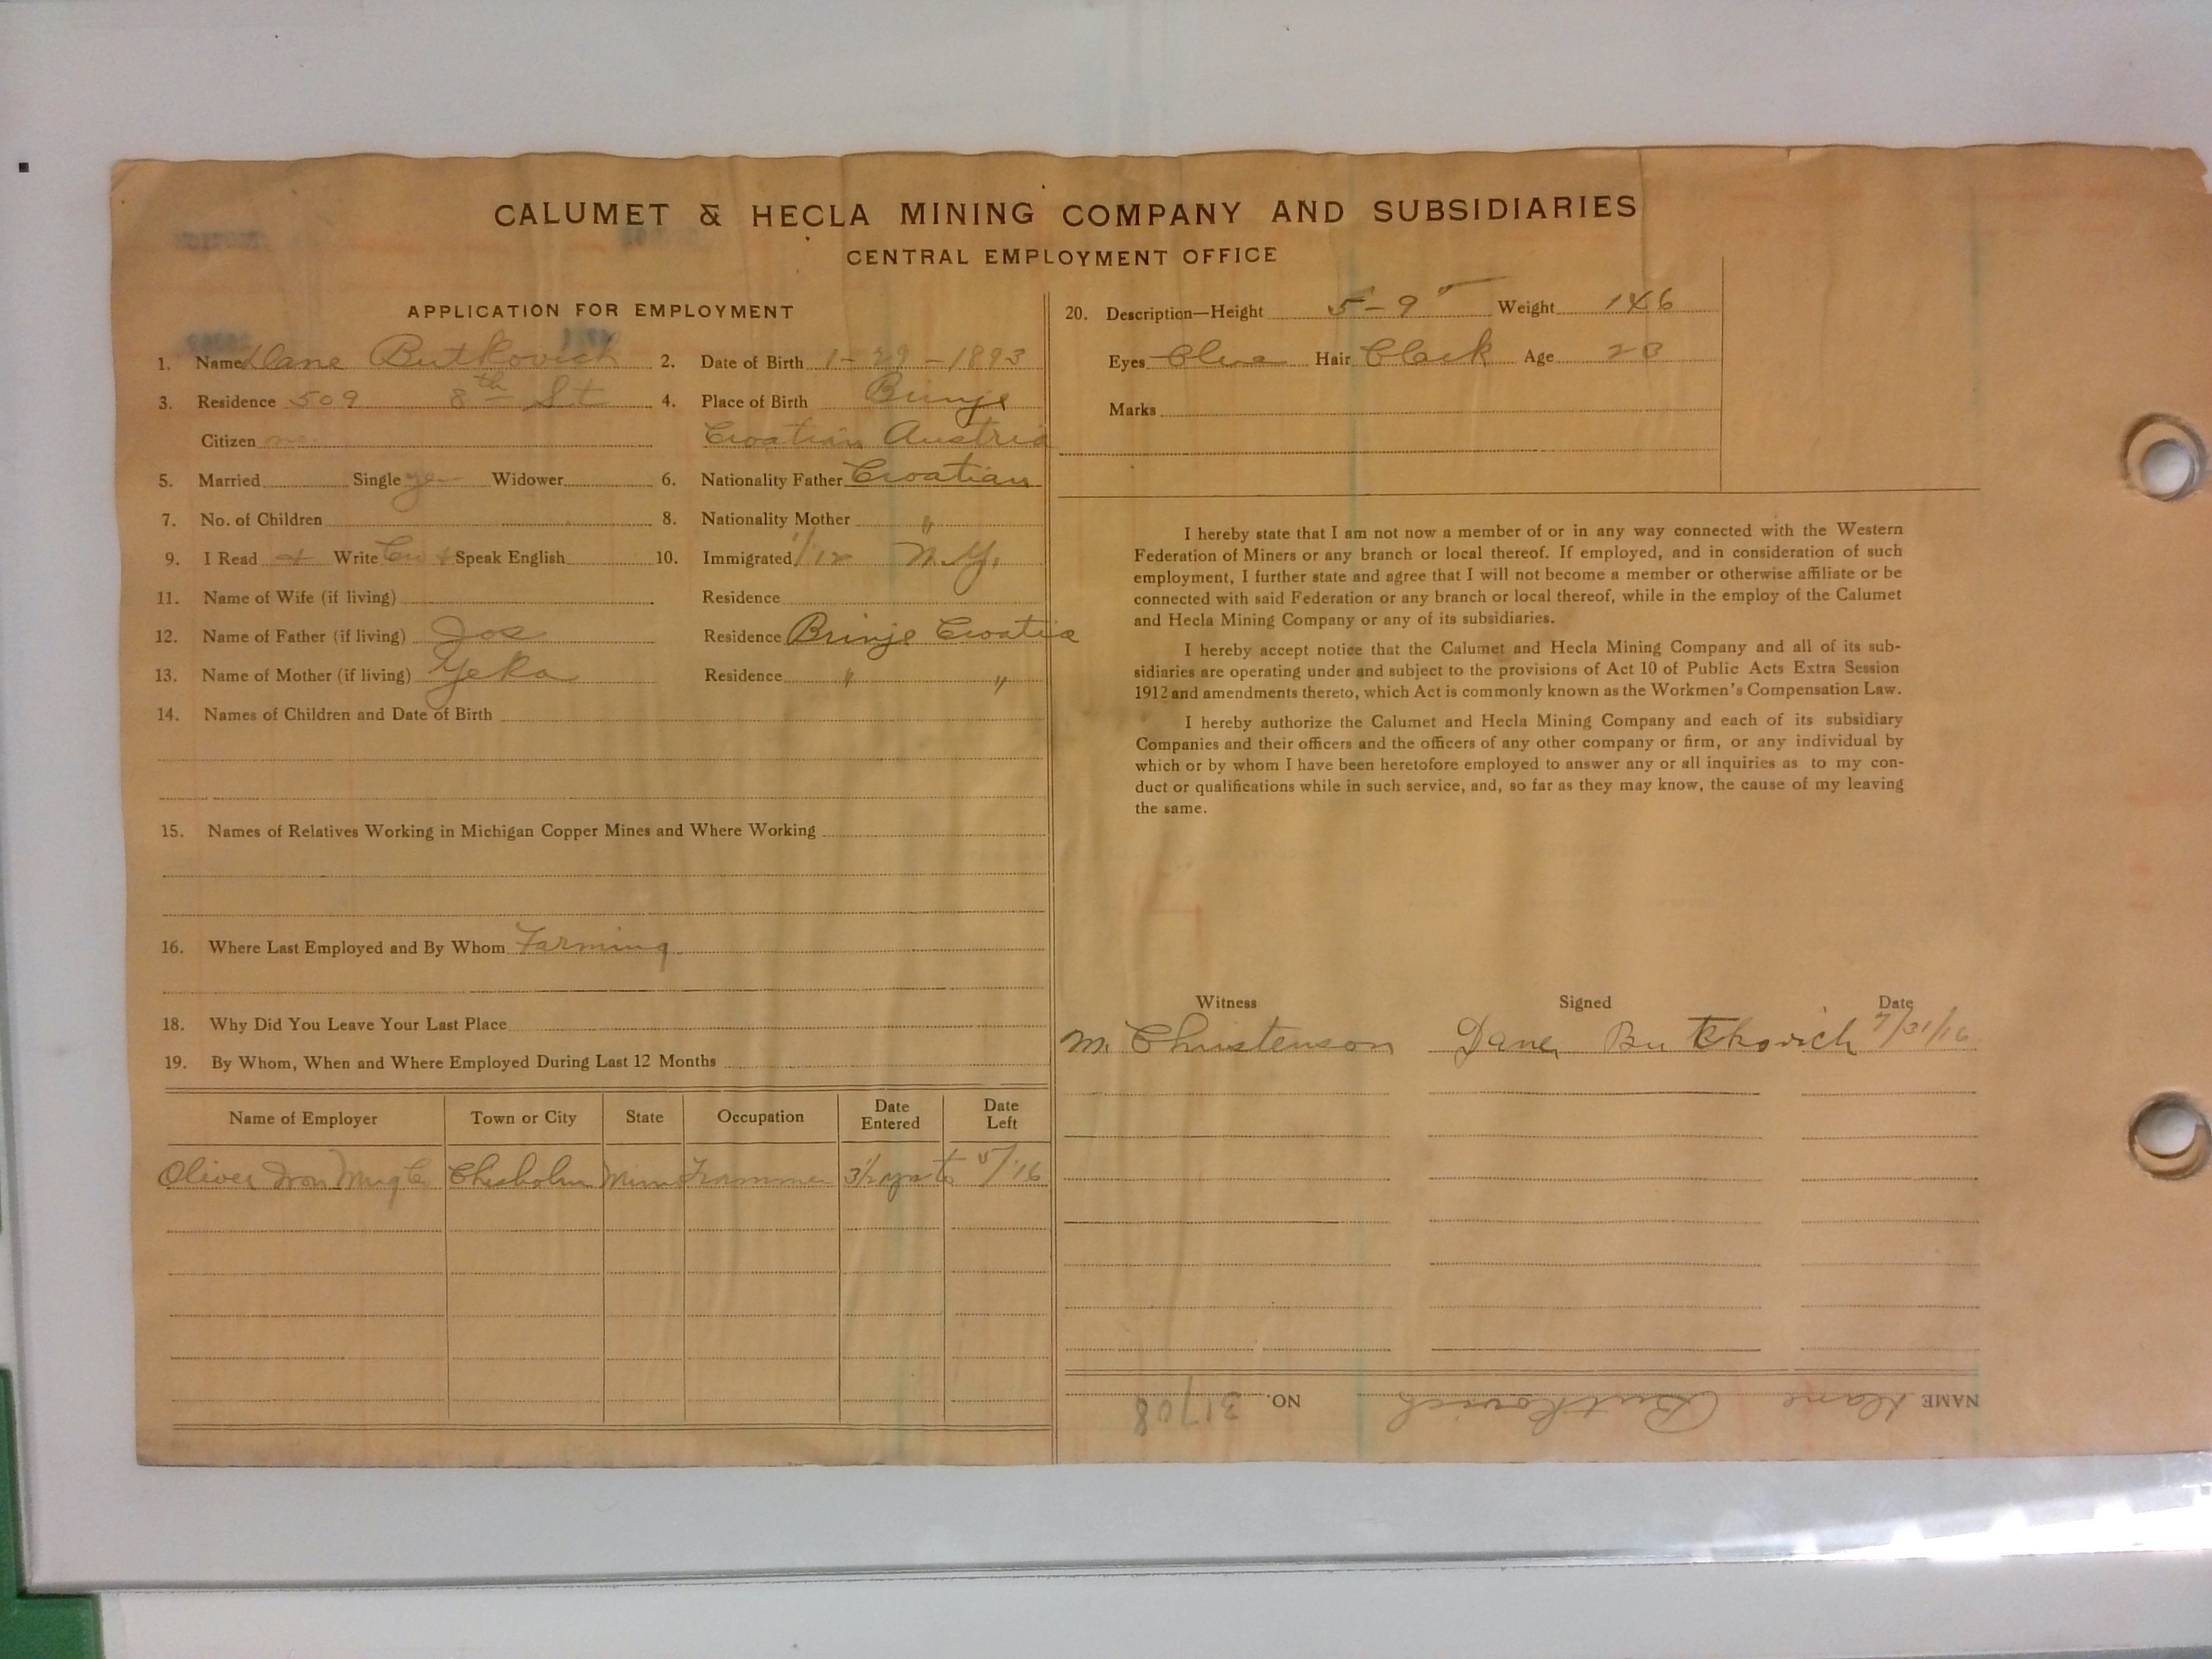 CALUMET & HECLA MINING COMPANY AND SUBSIDIARIES
CENTRAL EMPLOYMENT OFFICE
APPLICATION FOR EMPLOYMENT
1. Name Dane Butkovich 2. Date of Birth 1-29-1893
3. Residence 509 8th St 4. Place of Birth Brinje
Citizen no Croatian Austria
5. Married Single yes Widower 6. Nationality Father Croatian
7. No. of Children 8. Nationality Mother "
9. I Read + Write Cro + Speak English 10. Immigrated 1/12 N.Y.
11. Name of Wife (if living) Residence
12. Name of Father (if living) Jos Residence Brinje Croatia
13. Name of Mother (if living) Yeka Residence " "
14. Names of Children and Date of Birth
15. Names of Relatives Working in Michigan Copper Mines and Where Working
16. Where Last Employed and By Whom Farming
18. Why Did You Leave Your Last Place
19. By Whom, When and Where Employed During Last 12 Months
Name of Employer Town or City State Occupation Date Entered Date Left
Oliver Iron Mng Co Chisholm Minn Trammer 3½ yrs to 5/16
20. Description—Height 5-9" Weight 146
Eyes Blue Hair Black Age 23
Marks
I hereby state that I am not now a member of or in any way connected with the Western
Federation of Miners or any branch or local thereof. If employed, and in consideration of such
employment, I further state and agree that I will not become a member or otherwise affiliate or be
connected with said Federation or any branch or local thereof, while in the employ of the Calumet
and Hecla Mining Company or any of its subsidiaries.
I hereby accept notice that the Calumet and Hecla Mining Company and all of its sub-
sidiaries are operating under and subject to the provisions of Act 10 of Public Acts Extra Session
1912 and amendments thereto, which Act is commonly known as the Workmen's Compensation Law.
I hereby authorize the Calumet and Hecla Mining Company and each of its subsidiary
Companies and their officers and the officers of any other company or firm, or any individual by
which or by whom I have been heretofore employed to answer any or all inquiries as to my con-
duct or qualifications while in such service, and, so far as they may know, the cause of my leaving
the same.
Witness Signed Date
M. Christenson Dane Butkovich 7/31/16
NAME Dane Butkovich NO. 31708